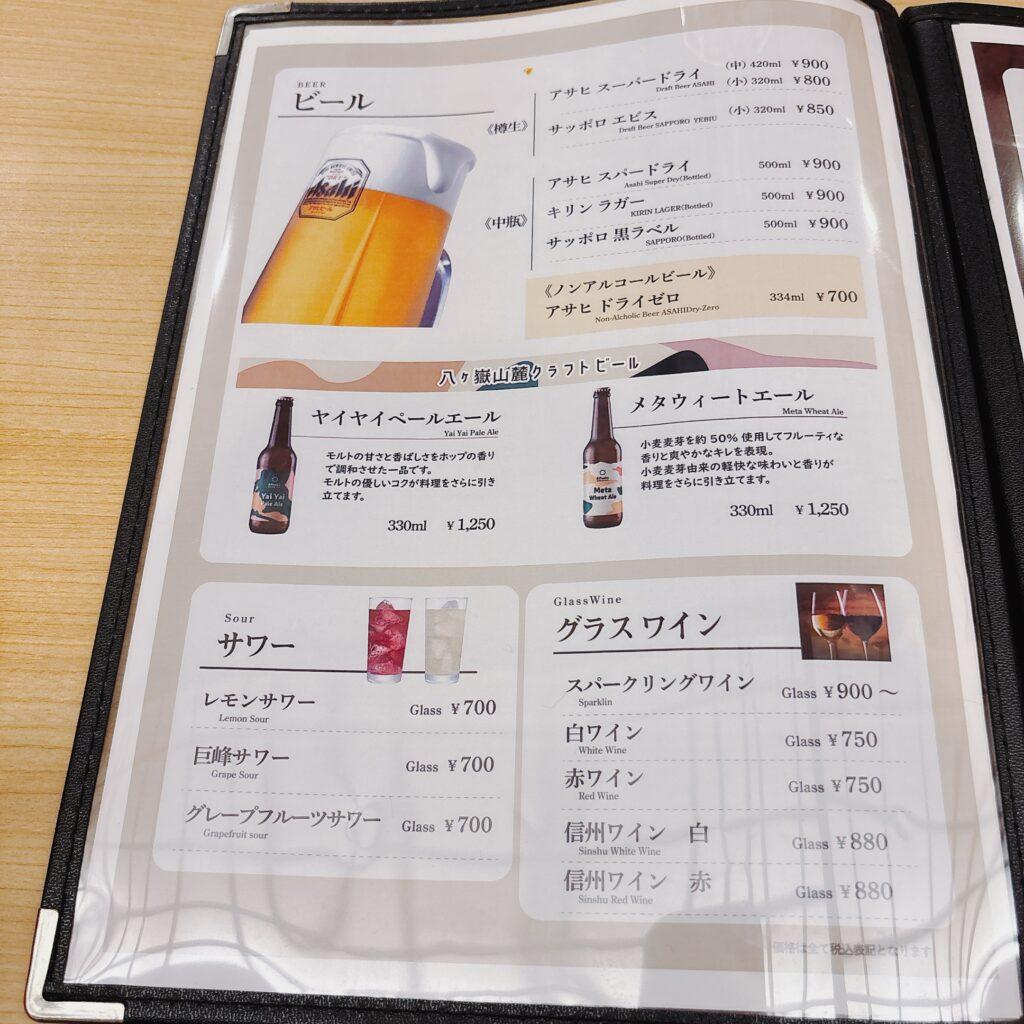 BEER
ビール
《樽生》
アサヒ スーパードライ (中) 420ml ¥900
Draft Beer ASAHI (小) 320ml ¥800
サッポロ エビス (小) 320ml ¥850
Draft Beer SAPPORO YEBIU
《中瓶》
アサヒ スパードライ 500ml ¥900
Asahi Super Dry(Bottled)
キリン ラガー 500ml ¥900
KIRIN LAGER(Bottled)
サッポロ 黒ラベル 500ml ¥900
SAPPORO(Bottled)
《ノンアルコールビール》
アサヒ ドライゼロ 334ml ¥700
Non-Alcholic Beer ASAHIDry-Zero
Asahi
八ヶ嶽山麓クラフトビール
ヤイヤイペールエール
Yai Yai Pale Ale
モルトの甘さと香ばしさをホップの香り
で調和させた一品です。
モルトの優しいコクが料理をさらに引き
立てます。
330ml ¥1,250
Yai Yai
Pale Ale
メタウィートエール
Meta Wheat Ale
小麦麦芽を約 50% 使用してフルーティな
香りと爽やかなキレを表現。
小麦麦芽由来の軽快な味わいと香りが
料理をさらに引き立てます。
330ml ¥1,250
Meta
Wheat Ale
Sour
サワー
レモンサワー Glass ¥700
Lemon Sour
巨峰サワー Glass ¥700
Grape Sour
グレープフルーツサワー Glass ¥700
Grapefruit sour
GlassWine
グラスワイン
スパークリングワイン Glass ¥900～
Sparklin
白ワイン Glass ¥750
White Wine
赤ワイン Glass ¥750
Red Wine
信州ワイン 白 Glass ¥880
Sinshu White Wine
信州ワイン 赤 Glass ¥880
Sinshu Red Wine
価格は全て税込表記となります